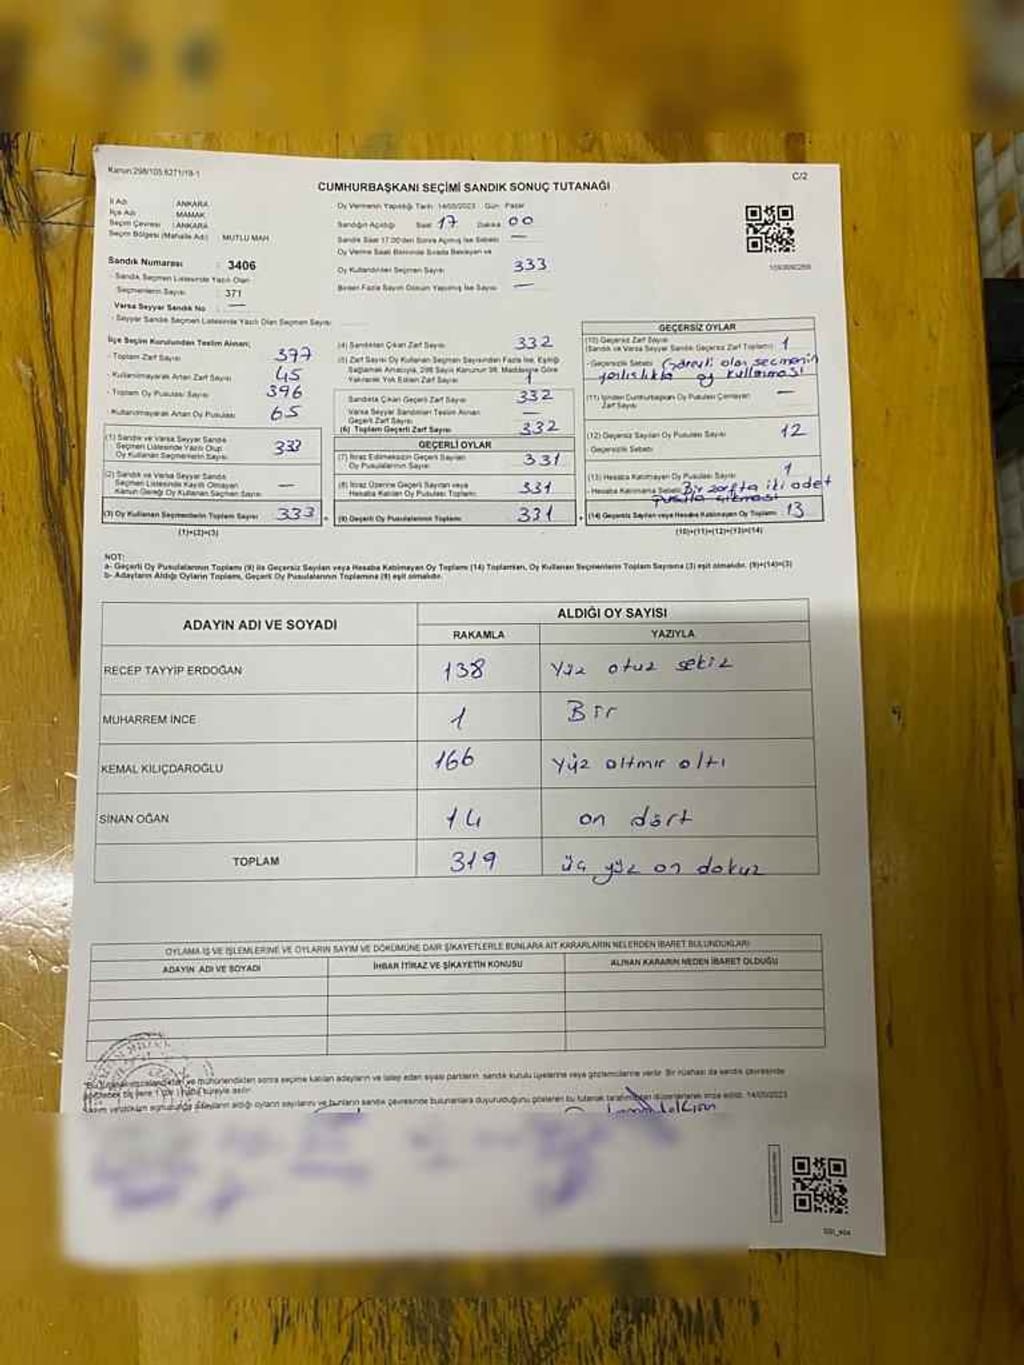 Kanun:298/105.6271/19-1
C/2
CUMHURBAŞKANI SEÇİMİ SANDIK SONUÇ TUTANAĞI
İl Adı : ANKARA
İlçe Adı : MAMAK
Seçim Çevresi : ANKARA
Seçim Bölgesi (Mahalle Adı) : MUTLU MAH
Sandık Numarası : 3406
- Sandık Seçmen Listesinde Yazılı Olan
Seçmenlerin Sayısı : 371
Varsa Seyyar Sandık No : —
- Seyyar Sandık Seçmen Listesinde Yazılı Olan Seçmen Sayısı
Oy Vermenin Yapıldığı Tarih: 14/05/2023 Gün: Pazar
Sandığın Açıldığı Saat 17 Dakika 00
Sandık Saat 17.00'den Sonra Açılmış İse Sebebi —
Oy Verme Saati Bitiminde Sırada Bekleyen ve
Oy Kullandırılan Seçmen Sayısı 333
Birden Fazla Sayım Döküm Yapılmış İse Sayısı —
İlçe Seçim Kurulundan Teslim Alınan;
- Toplam Zarf Sayısı 397
Kullanılmayarak Artan Zarf Sayısı 45
- Toplam Oy Pusulası Sayısı 396
- Kullanılmayarak Artan Oy Pusulası 65
(1) Sandık ve Varsa Seyyar Sandık
Seçmen Listesinde Yazılı Olup
Oy Kullanan Seçmenlerin Sayısı 333
(2) Sandık ve Varsa Seyyar Sandık
Seçmen Listesinde Kayıtlı Olmayan
Kanun Gereği Oy Kullanan Seçmen Sayısı —
(3) Oy Kullanan Seçmenlerin Toplam Sayısı 333
(1)+(2)=(3)
(4) Sandıktan Çıkan Zarf Sayısı 332
(5) Zarf Sayısı Oy Kullanan Seçmen Sayısından Fazla İse, Eşitliği
Sağlamak Amacıyla, 298 Sayılı Kanunun 98. Maddesine Göre
Yakılarak Yok Edilen Zarf Sayısı 1
Sandıkta Çıkan Geçerli Zarf Sayısı 332
Varsa Seyyar Sandıktan Teslim Alınan
Geçerli Zarf Sayısı —
(6) Toplam Geçerli Zarf Sayısı 332
GEÇERLİ OYLAR
(7) İtiraz Edilmeksizin Geçerli Sayılan
Oy Pusulalarının Sayısı 331
(8) İtiraz Üzerine Geçerli Sayılan veya
Hesaba Katılan Oy Pusulası Toplamı 331
(9) Geçerli Oy Pusulalarının Toplamı 331
GEÇERSİZ OYLAR
(10) Geçersiz Zarf Sayısı
(Sandık ve Varsa Seyyar Sandık Geçersiz Zarf Toplamı) 1
- Geçersizlik Sebebi Görevli olan seçmenin
yanlışlıkla oy kullanması
(11) İçinden Cumhurbaşkanı Oy Pusulası Çıkmayan
Zarf Sayısı —
(12) Geçersiz Sayılan Oy Pusulası Sayısı 12
- Geçersizlik Sebebi
(13) Hesaba Katılmayan Oy Pusulası Sayısı 1
- Hesaba Katılmama Sebebi Bir zarfta iki adet
pusula çıkması
(14) Geçersiz Sayılan veya Hesaba Katılmayan Oy Toplamı 13
(10)+(11)+(12)+(13)=(14)
NOT:
a- Geçerli Oy Pusulalarının Toplamı (9) ile Geçersiz Sayılan veya Hesaba Katılmayan Oy Toplamı (14) Toplamları, Oy Kullanan Seçmenlerin Toplam Sayısına (3) eşit olmalıdır. (9)+(14)=(3)
b- Adayların Aldığı Oyların Toplamı, Geçerli Oy Pusulalarının Toplamına (9) eşit olmalıdır.
ADAYIN ADI VE SOYADI ALDIĞI OY SAYISI
RAKAMLA YAZIYLA
RECEP TAYYİP ERDOĞAN 138 Yüz otuz sekiz
MUHARREM İNCE 1 Bir
KEMAL KILIÇDAROĞLU 166 Yüz altmış altı
SİNAN OĞAN 14 on dört
TOPLAM 319 üç yüz on dokuz
OYLAMA İŞ VE İŞLEMLERİNE VE OYLARIN SAYIM VE DÖKÜMÜNE DAİR ŞİKAYETLERLE BUNLARA AİT KARARLARIN NELERDEN İBARET BULUNDUKLARI
ADAYIN ADI VE SOYADI İHBAR İTİRAZ VE ŞİKAYETİN KONUSU ALINAN KARARIN NEDEN İBARET OLDUĞU
ve mühürlendikten sonra seçime katılan adayların ve talep eden siyasi partilerin sandık kurulu üyelerine veya gözlemcilerine verilir. Bir nüshası da sandık çevresinde
adayların aldığı oyların sayılarını ve bunların sandık çevresinde bulunanlara duyurulduğunu gösteren bu tutanak tarafımızdan düzenlenerek imza edildi. 14/05/2023